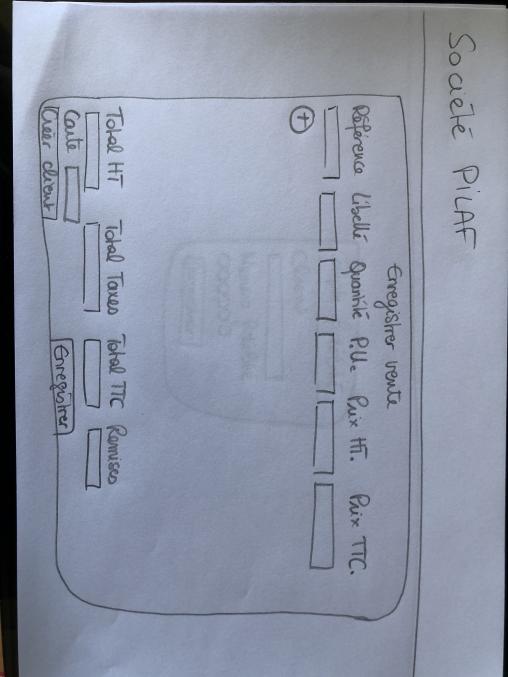 Société PILAF
Enregistrer vente
Référence Libellé Quantité P.U. Prix HT. Prix TTC.
+
Total HT Total Taxes Total TTC Remises
Carte
Créer client Enregistrer